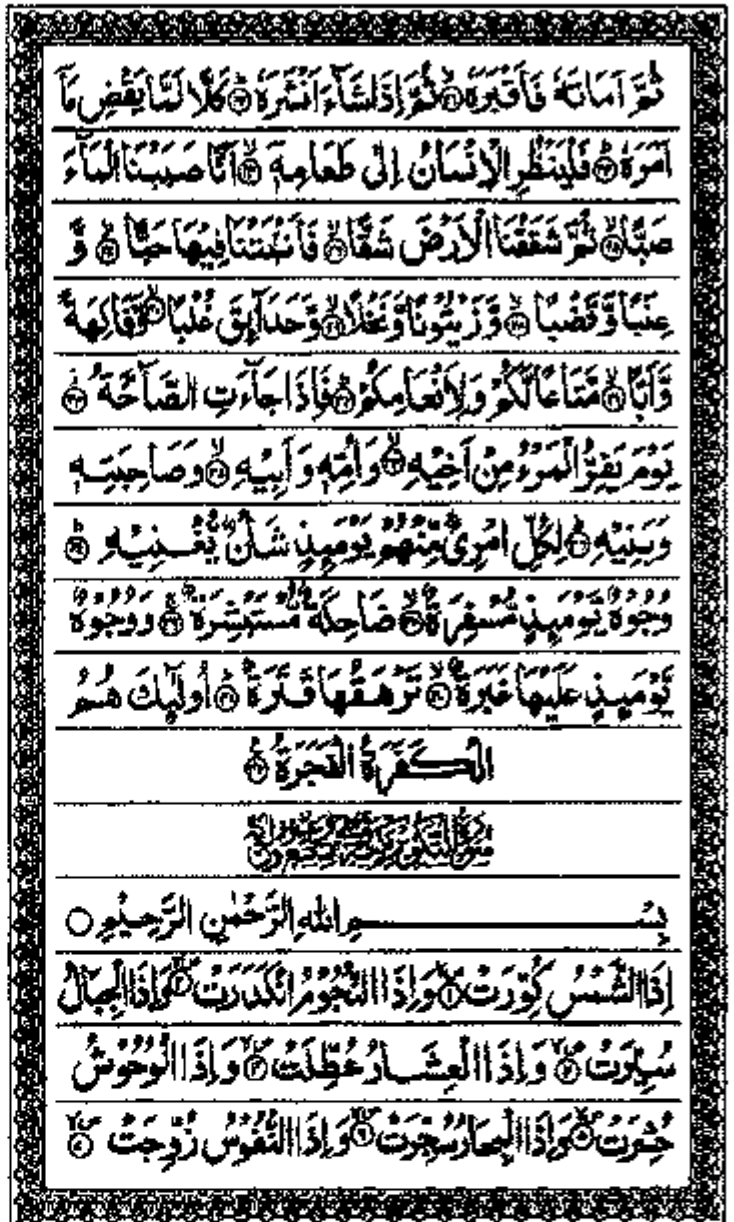 ثُمَّ اَمَاتَهٗ فَاَقْبَرَهٗ ۙ﴿۲۱﴾ ثُمَّ اِذَا شَآءَ اَنْشَرَهٗ ؕ﴿۲۲﴾ كَلَّا لَمَّا یَقْضِ مَاۤ
اَمَرَهٗ ؕ﴿۲۳﴾ فَلْیَنْظُرِ الْاِنْسَانُ اِلٰی طَعَامِهٖۤ ۙ﴿۲۴﴾ اَنَّا صَبَبْنَا الْمَآءَ
صَبًّا ۙ﴿۲۵﴾ ثُمَّ شَقَقْنَا الْاَرْضَ شَقًّا ۙ﴿۲۶﴾ فَاَنْۢبَتْنَا فِیْهَا حَبًّا ۙ﴿۲۷﴾ وَّ
عِنَبًا وَّقَضْبًا ۙ﴿۲۸﴾ وَّزَیْتُوْنًا وَّنَخْلًا ۙ﴿۲۹﴾ وَّحَدَآىِٕقَ غُلْبًا ۙ﴿۳۰﴾ وَّفَاكِهَةً
وَّاَبًّا ۙ﴿۳۱﴾ مَّتَاعًا لَّكُمْ وَلِاَنْعَامِكُمْ ؕ﴿۳۲﴾ فَاِذَا جَآءَتِ الصَّآخَّةُ ؗ﴿۳۳﴾
یَوْمَ یَفِرُّ الْمَرْءُ مِنْ اَخِیْهِ ۙ﴿۳۴﴾ وَاُمِّهٖ وَاَبِیْهِ ۙ﴿۳۵﴾ وَصَاحِبَتِهٖ
وَبَنِیْهِ ؕ﴿۳۶﴾ لِكُلِّ امْرِئٍ مِّنْهُمْ یَوْمَىِٕذٍ شَاْنٌ یُّغْنِیْهِ ؕ﴿۳۷﴾
وُجُوْهٌ یَّوْمَىِٕذٍ مُّسْفِرَةٌ ۙ﴿۳۸﴾ ضَاحِكَةٌ مُّسْتَبْشِرَةٌ ۚ﴿۳۹﴾ وَوُجُوْهٌ
یَّوْمَىِٕذٍ عَلَیْهَا غَبَرَةٌ ۙ﴿۴۰﴾ تَرْهَقُهَا قَتَرَةٌ ؕ﴿۴۱﴾ اُولٰٓىِٕكَ هُمُ
الْكَفَرَةُ الْفَجَرَةُ ﴿۴۲﴾
بِسْمِ اللهِ الرَّحْمٰنِ الرَّحِیْمِ ○
اِذَا الشَّمْسُ كُوِّرَتْ ۪ۙ﴿۱﴾ وَاِذَا النُّجُوْمُ انْكَدَرَتْ ۪ۙ﴿۲﴾ وَاِذَا الْجِبَالُ
سُیِّرَتْ ۪ۙ﴿۳﴾ وَاِذَا الْعِشَارُ عُطِّلَتْ ۪ۙ﴿۴﴾ وَاِذَا الْوُحُوْشُ
حُشِرَتْ ۪ۙ﴿۵﴾ وَاِذَا الْبِحَارُ سُجِّرَتْ ۪ۙ﴿۶﴾ وَاِذَا النُّفُوْسُ زُوِّجَتْ ۪ۙ﴿۷﴾